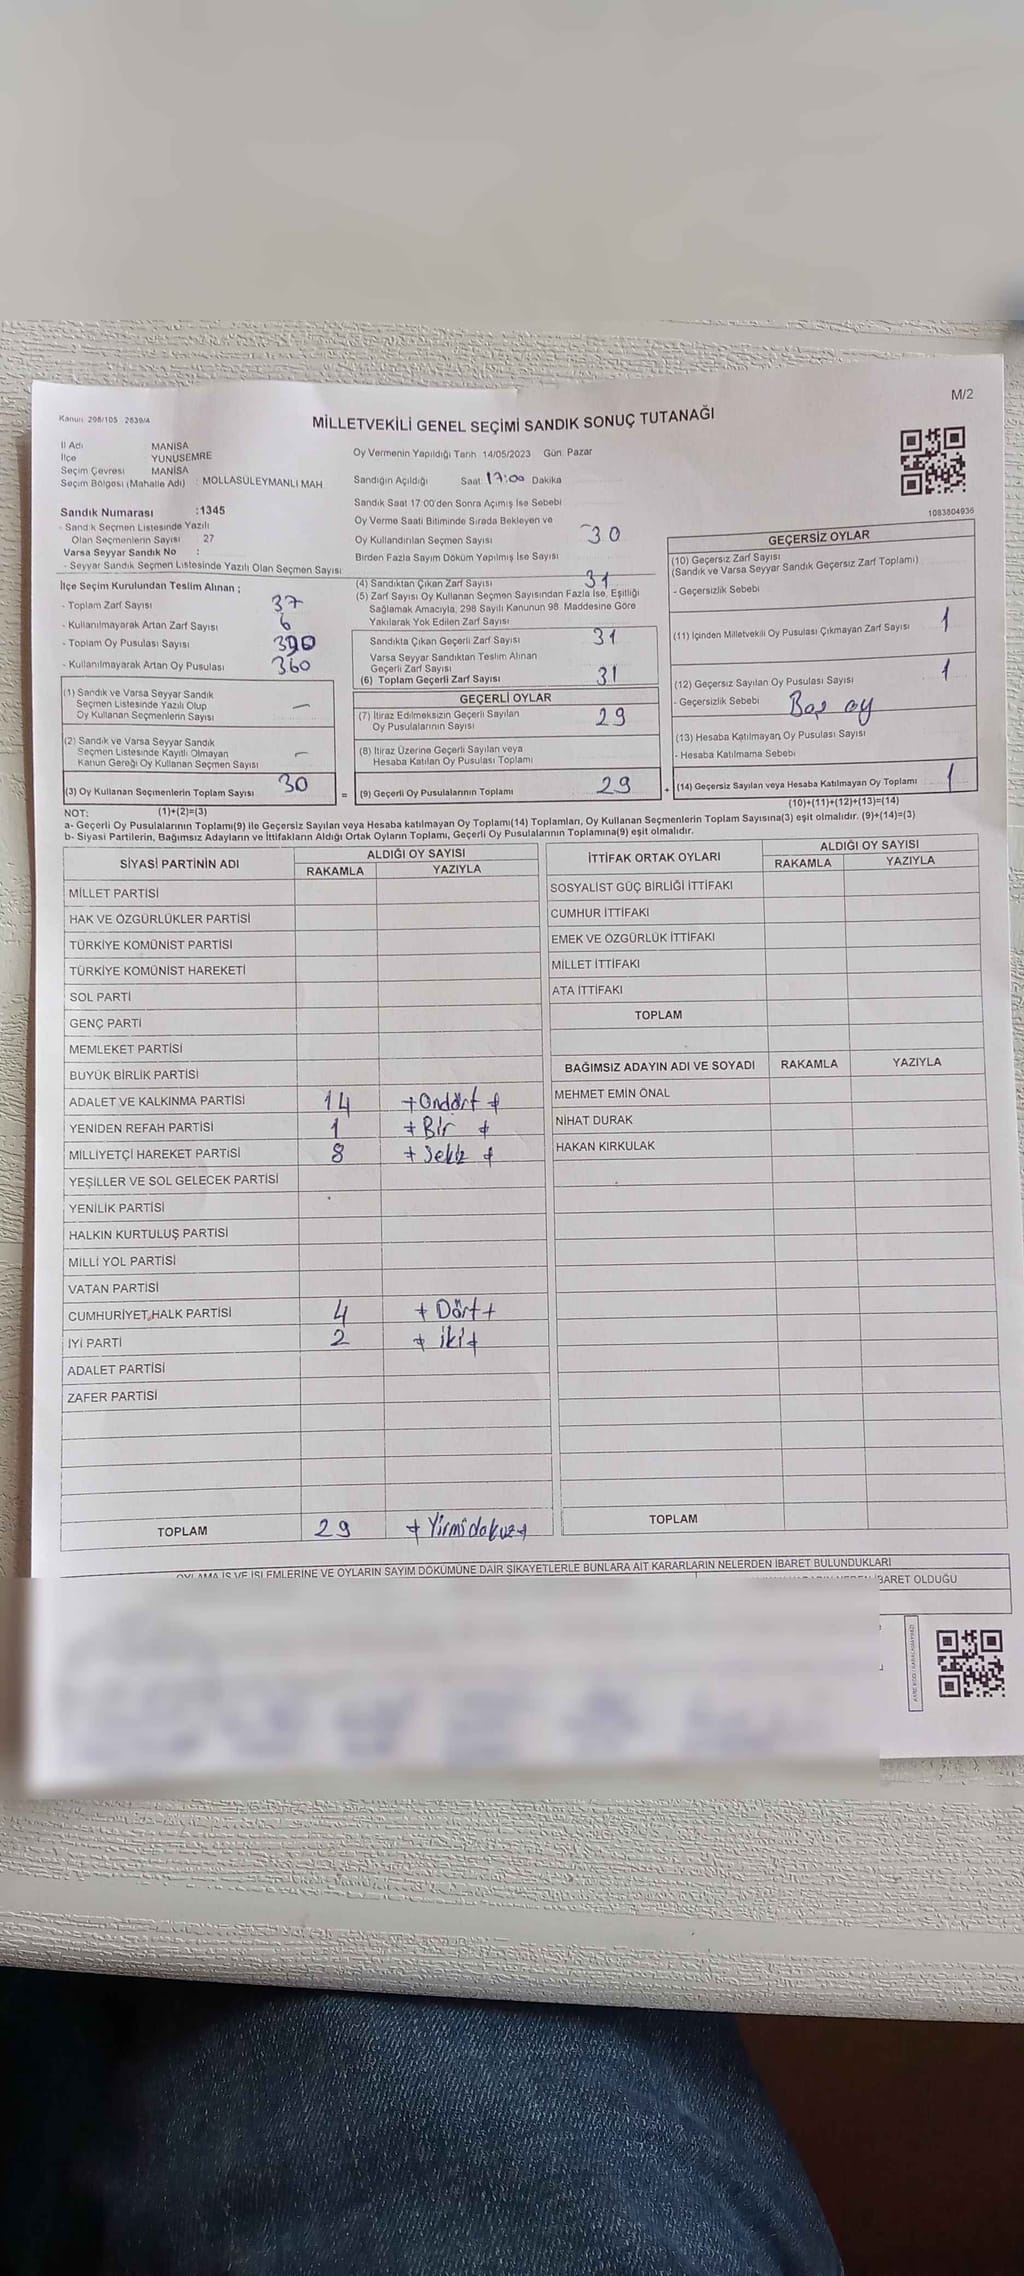 M/2
Kanun 298/105 2839/4
MİLLETVEKİLİ GENEL SEÇİMİ SANDIK SONUÇ TUTANAĞI
İl Adı MANİSA
İlçe YUNUSEMRE
Seçim Çevresi MANİSA
Seçim Bölgesi (Mahalle Adı) : MOLLASÜLEYMANLI MAH.
Oy Vermenin Yapıldığı Tarih 14/05/2023 Gün Pazar
Sandığın Açıldığı Saat 17:00 Dakika
Sandık Saat 17:00'den Sonra Açımış İse Sebebi
Oy Verme Saati Bitiminde Sırada Bekleyen ve
Oy Kullandırılan Seçmen Sayısı 30
Birden Fazla Sayım Döküm Yapılmış İse Sayısı
1083804936
Sandık Numarası :1345
- Sandık Seçmen Listesinde Yazılı
Olan Seçmenlerin Sayısı 27
Varsa Seyyar Sandık No :
- Seyyar Sandık Seçmen Listesinde Yazılı Olan Seçmen Sayısı
İlçe Seçim Kurulundan Teslim Alınan ;
- Toplam Zarf Sayısı 37
- Kullanılmayarak Artan Zarf Sayısı 6
- Toplam Oy Pusulası Sayısı 390
- Kullanılmayarak Artan Oy Pusulası 360
(1) Sandık ve Varsa Seyyar Sandık
Seçmen Listesinde Yazılı Olup
Oy Kullanan Seçmenlerin Sayısı —
(2) Sandık ve Varsa Seyyar Sandık
Seçmen Listesinde Kayıtlı Olmayan
Kanun Gereği Oy Kullanan Seçmen Sayısı —
(3) Oy Kullanan Seçmenlerin Toplam Sayısı 30
(4) Sandıktan Çıkan Zarf Sayısı 31
(5) Zarf Sayısı Oy Kullanan Seçmen Sayısından Fazla İse, Eşitliği
Sağlamak Amacıyla, 298 Sayılı Kanunun 98. Maddesine Göre
Yakılarak Yok Edilen Zarf Sayısı
Sandıkta Çıkan Geçerli Zarf Sayısı 31
Varsa Seyyar Sandıktan Teslim Alınan
Geçerli Zarf Sayısı
(6) Toplam Geçerli Zarf Sayısı 31
GEÇERLİ OYLAR
(7) İtiraz Edilmeksizin Geçerli Sayılan
Oy Pusulalarının Sayısı 29
(8) İtiraz Üzerine Geçerli Sayılan veya
Hesaba Katılan Oy Pusulası Toplamı
= (9) Geçerli Oy Pusulalarının Toplamı 29
GEÇERSİZ OYLAR
(10) Geçersiz Zarf Sayısı
(Sandık ve Varsa Seyyar Sandık Geçersiz Zarf Toplamı)
- Geçersizlik Sebebi
(11) İçinden Milletvekili Oy Pusulası Çıkmayan Zarf Sayısı 1
(12) Geçersiz Sayılan Oy Pusulası Sayısı 1
- Geçersizlik Sebebi Boş oy
(13) Hesaba Katılmayan Oy Pusulası Sayısı
- Hesaba Katılmama Sebebi
+ (14) Geçersiz Sayılan veya Hesaba Katılmayan Oy Toplamı 1
NOT: (1)+(2)=(3) (10)+(11)+(12)+(13)=(14)
a- Geçerli Oy Pusulalarının Toplamı(9) ile Geçersiz Sayılan veya Hesaba katılmayan Oy Toplamı(14) Toplamları, Oy Kullanan Seçmenlerin Toplam Sayısına(3) eşit olmalıdır. (9)+(14)=(3)
b- Siyasi Partilerin, Bağımsız Adayların ve İttifakların Aldığı Ortak Oyların Toplamı, Geçerli Oy Pusulalarının Toplamına(9) eşit olmalıdır.
SİYASİ PARTİNİN ADI ALDIĞI OY SAYISI
RAKAMLA YAZIYLA
MİLLET PARTİSİ
HAK VE ÖZGÜRLÜKLER PARTİSİ
TÜRKİYE KOMÜNİST PARTİSİ
TÜRKİYE KOMÜNİST HAREKETİ
SOL PARTİ
GENÇ PARTİ
MEMLEKET PARTİSİ
BÜYÜK BİRLİK PARTİSİ
ADALET VE KALKINMA PARTİSİ 14 +Ondört+
YENİDEN REFAH PARTİSİ 1 +Bir +
MİLLİYETÇİ HAREKET PARTİSİ 8 +Sekiz +
YEŞİLLER VE SOL GELECEK PARTİSİ
YENİLİK PARTİSİ
HALKIN KURTULUŞ PARTİSİ
MİLLİ YOL PARTİSİ
VATAN PARTİSİ
CUMHURİYET HALK PARTİSİ 4 + Dört +
İYİ PARTİ 2 + iki +
ADALET PARTİSİ
ZAFER PARTİSİ
TOPLAM 29 + Yirmidokuz+
İTTİFAK ORTAK OYLARI ALDIĞI OY SAYISI
RAKAMLA YAZIYLA
SOSYALİST GÜÇ BİRLİĞİ İTTİFAKI
CUMHUR İTTİFAKI
EMEK VE ÖZGÜRLÜK İTTİFAKI
MİLLET İTTİFAKI
ATA İTTİFAKI
TOPLAM
BAĞIMSIZ ADAYIN ADI VE SOYADI RAKAMLA YAZIYLA
MEHMET EMİN ÖNAL
NİHAT DURAK
HAKAN KIRKULAK
TOPLAM
İŞLEMLERİNE VE OYLARIN SAYIM DÖKÜMÜNE DAİR ŞİKAYETLERLE BUNLARA AİT KARARLARIN NELERDEN İBARET BULUNDUKLARI
İBARET OLDUĞU